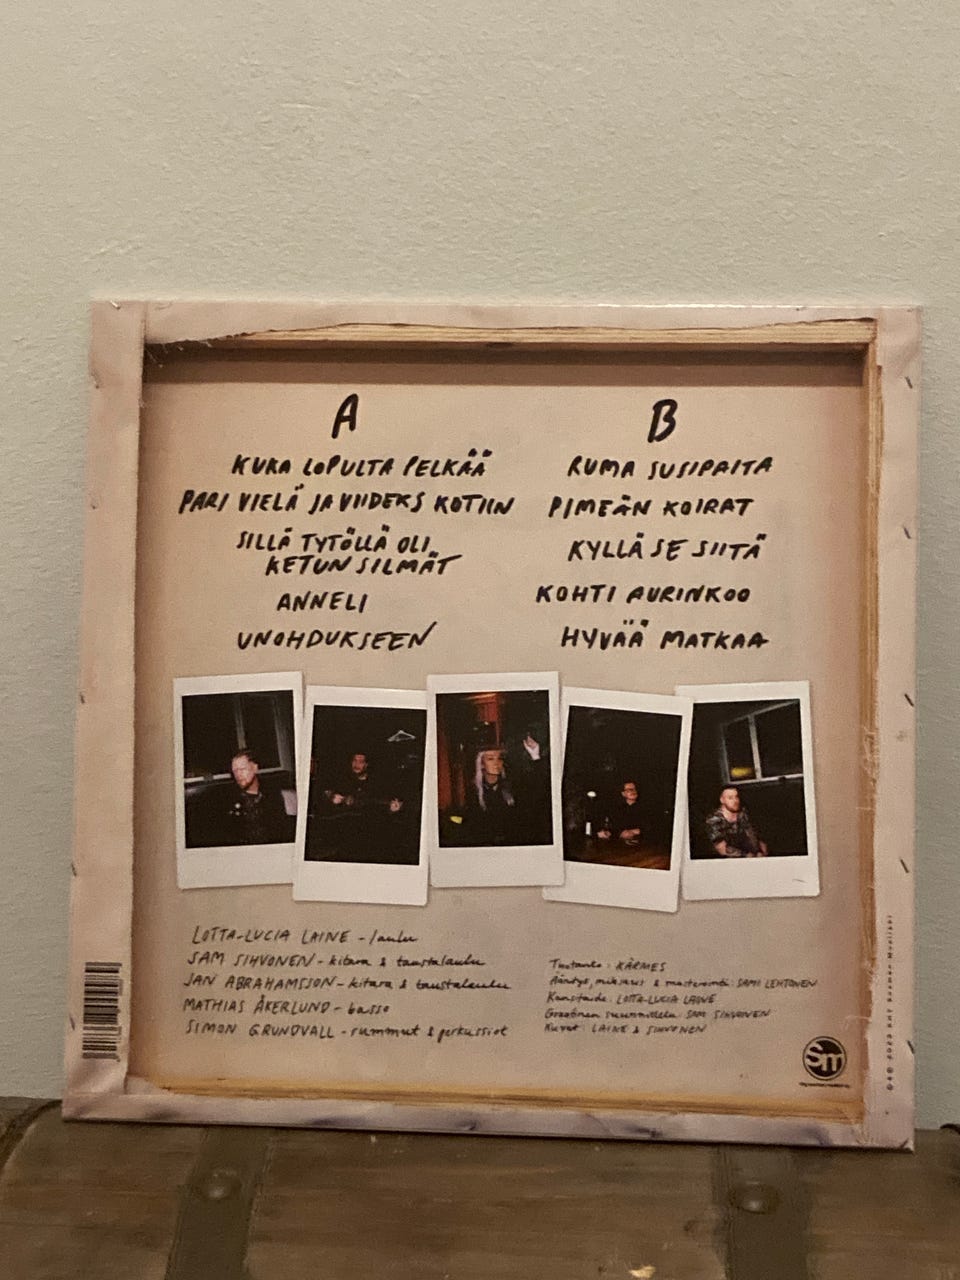 A
KUKA LOPULTA PELKÄÄ
PARI VIELÄ JA VIIDEKS KOTIIN
SILLÄ TYTÖLLÄ OLI
KETUN SILMÄT
ANNELI
UNOHDUKSEEN
B
RUMA SUSIPAITA
PIMEÄN KOIRAT
KYLLÄ SE SIITÄ
KOHTI AURINKOO
HYVÄÄ MATKAA
LOTTA-LUCIA LAINE - laulu
SAM SIHVONEN - kitara & taustalaulu
JAN ABRAHAMSSON - kitara & taustalaulu
MATHIAS ÅKERLUND - basso
SIMON GRUNDVALL - rummut & perkussiot
Tuotanto: KÄRMES
Äänitys, miksaus & masterointi: SAMI LEHTONEN
Kansitaide: LOTTA-LUCIA LAINE
Graafinen suunnittelu: SAM SIHVONEN
Kuvat: LAINE & SIHVONEN
Sm